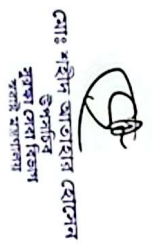 মোঃ শহীদ আতাহার হোসেন
উপসচিব
সুরক্ষা সেবা বিভাগ
স্বরাষ্ট্র মন্ত্রণালয়